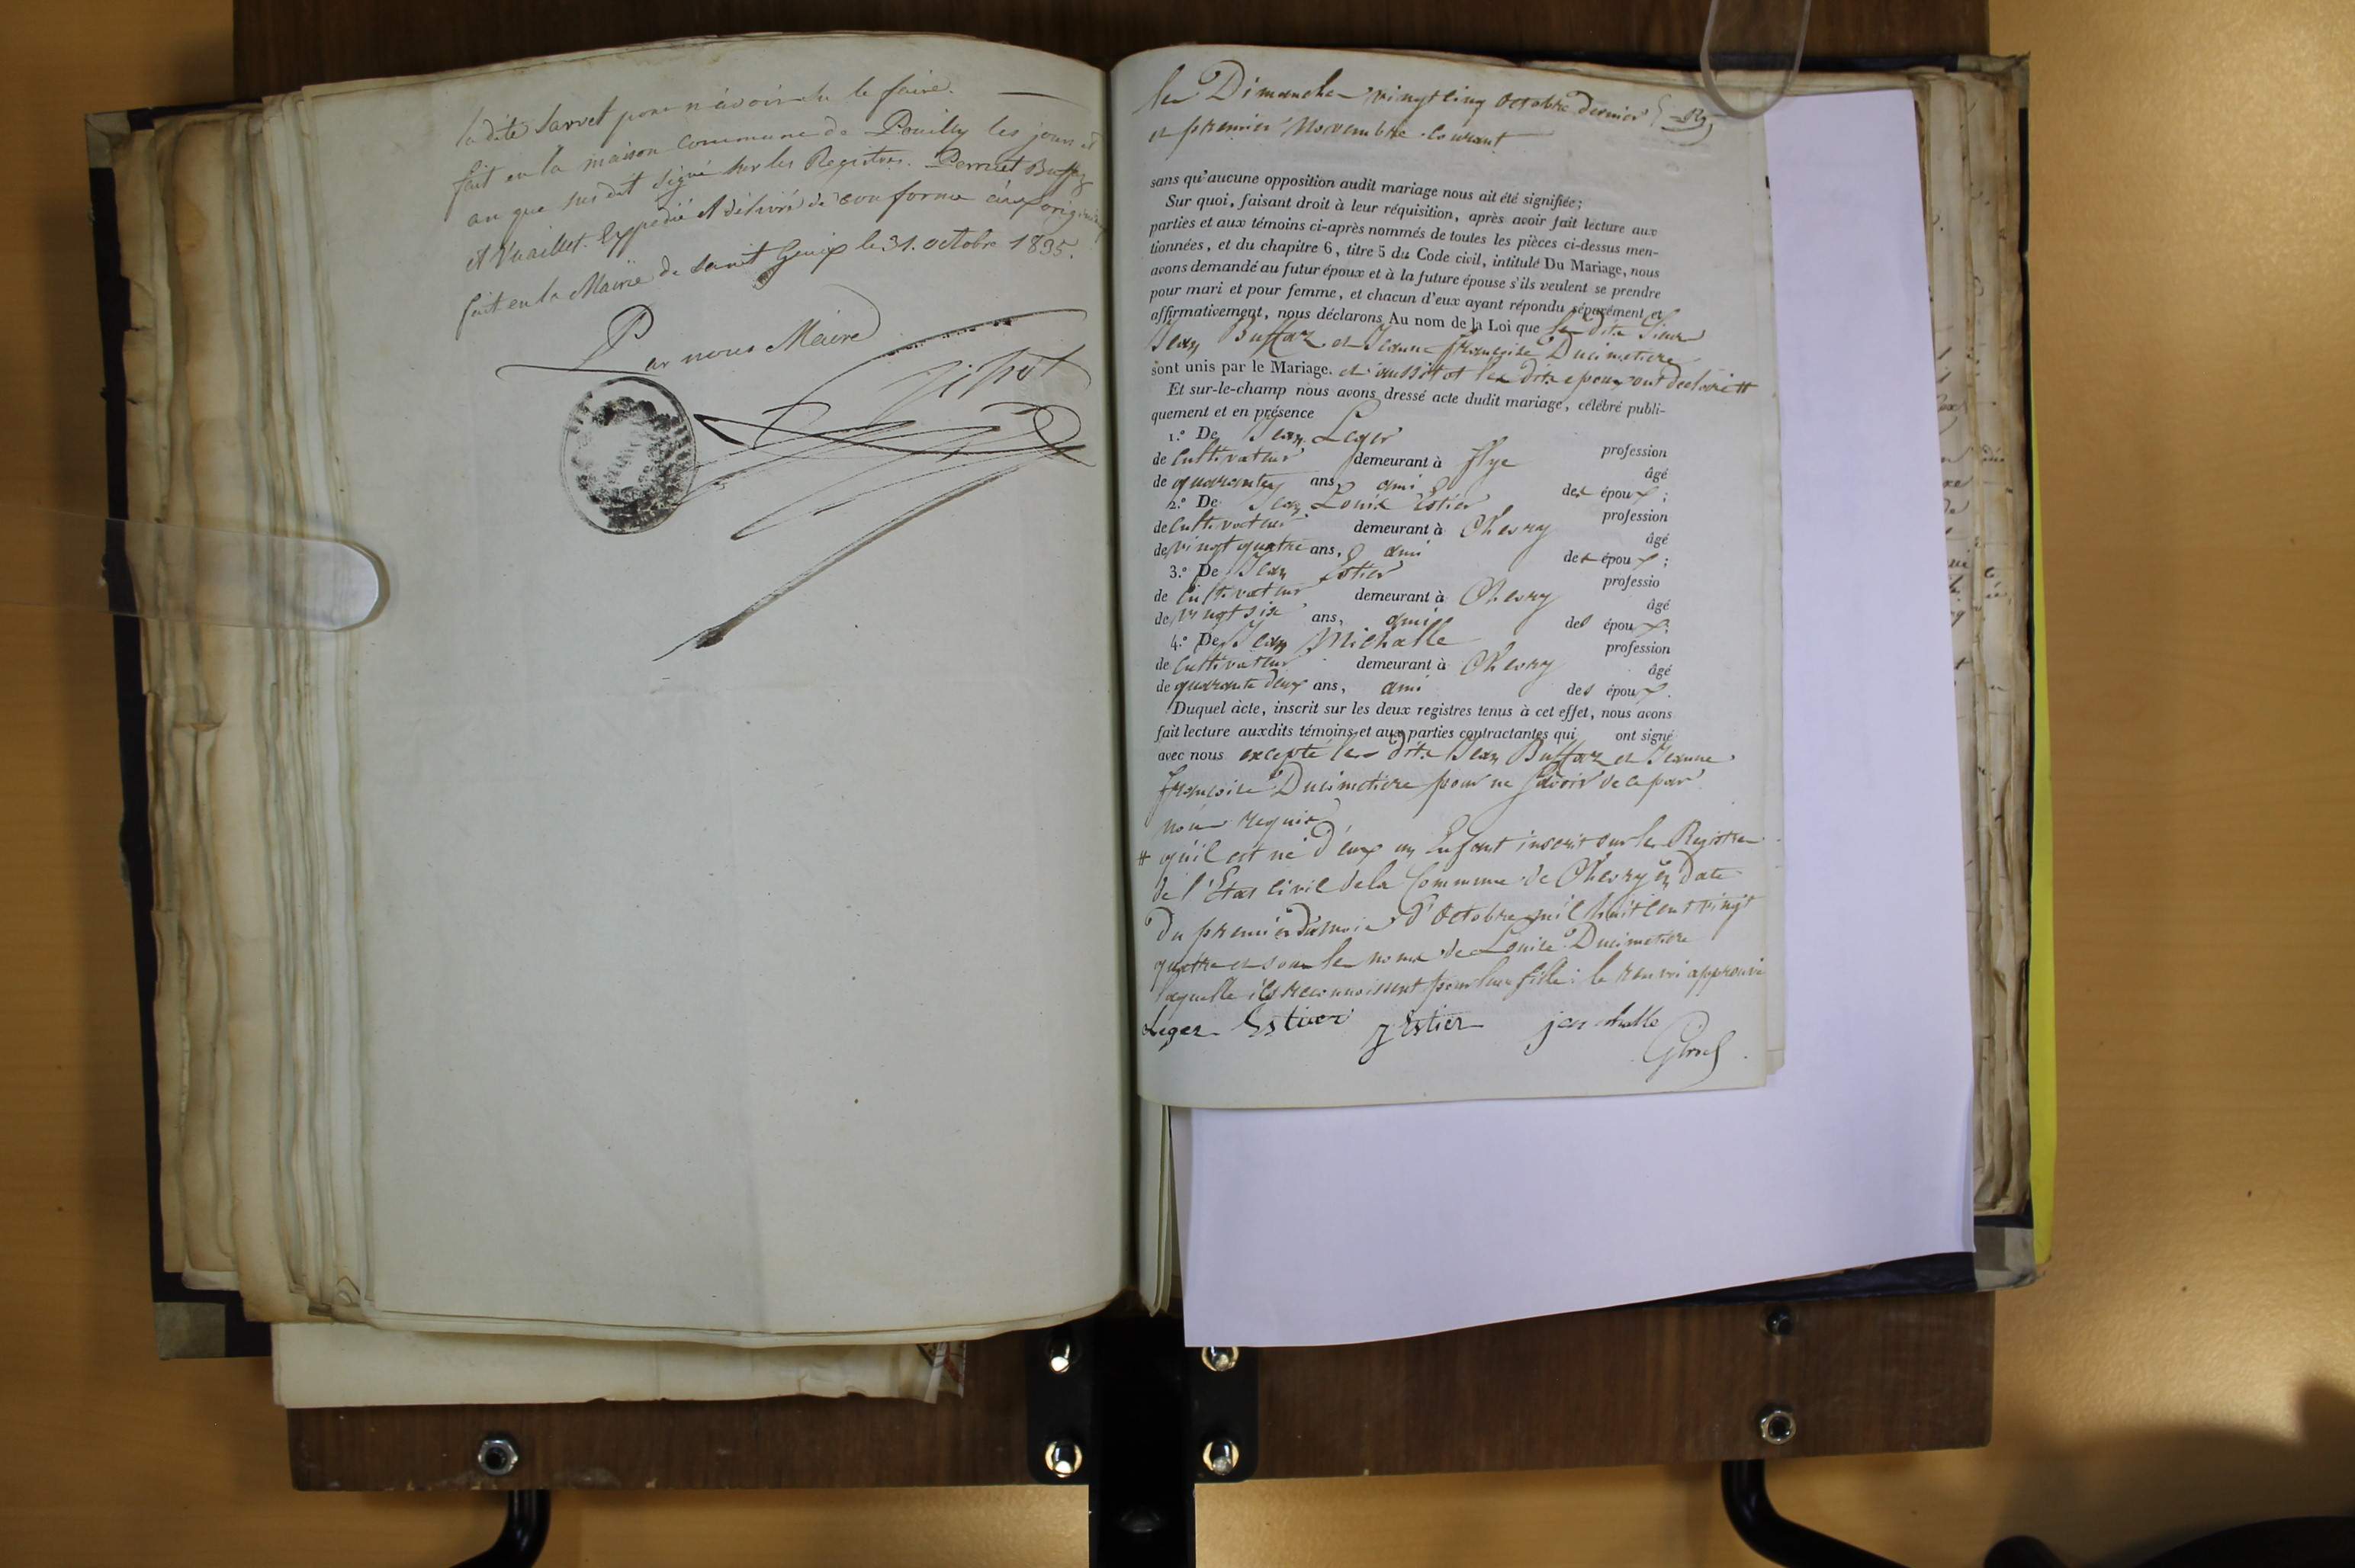 la dite Sarvet pour n'avoir su le faire.
fait en la maison Commune de Pouilly les jour et
an que susdit signé sur les Registres. Perruet Buffaz
et Vuaillet. Expédié et délivré de conforme aux originaux
fait en la Mairie de Saint Genix le 31. octobre 1835.
Par nous Maire
les Dimanche vingt cinq Octobre dernier
et premier Novembre courant
sans qu'aucune opposition audit mariage nous ait été signifiée;
Sur quoi, faisant droit à leur réquisition, après avoir fait lecture aux
parties et aux témoins ci-après nommés de toutes les pièces ci-dessus men-
tionnées, et du chapitre 6, titre 5 du Code civil, intitulé Du Mariage, nous
avons demandé au futur époux et à la future épouse s'ils veulent se prendre
pour mari et pour femme, et chacun d'eux ayant répondu séparément et
affirmativement, nous déclarons Au nom de la Loi que les dits Sieur
Jean Buffaz et Jeanne françoise Ducimetiere
sont unis par le Mariage. et aussitot les dits epoux ont declaré #
Et sur-le-champ nous avons dressé acte dudit mariage, célébré publi-
quement et en présence
1.° De Jean Leger profession
de Cultivateur demeurant à flye âgé
de quarante ans, ami des époux;
2.° De Jean Louis Estier profession
de Cultivateur demeurant à Chevry âgé
de vingt quatre ans, ami des époux;
3.° De Jean Estier professio
de Cultivateur demeurant à Chevry âgé
de vingt six ans, ami des époux;
4.° De Jean Michalle profession
de Cultivateur demeurant à Chevry âgé
de quarante deux ans, ami des époux.
Duquel acte, inscrit sur les deux registres tenus à cet effet, nous avons
fait lecture auxdits témoins et aux parties contractantes qui ont signé
avec nous excepté les dits Jean Buffaz et Jeanne
françoise Ducimetiere pour ne savoir de ce par
nous requis
# qu'il est né d'eux un Enfant inscrit sur les Registres
de l'Etat Civil de la Commune de Chevry en date
du premier du mois d'Octobre mil huit cent vingt
quatre et sous le nom de Louise Ducimetiere
laquelle ils reconnoissent pour leur fille: le renvoi approuvé
Leger Estier J Estier jean challe
Girod